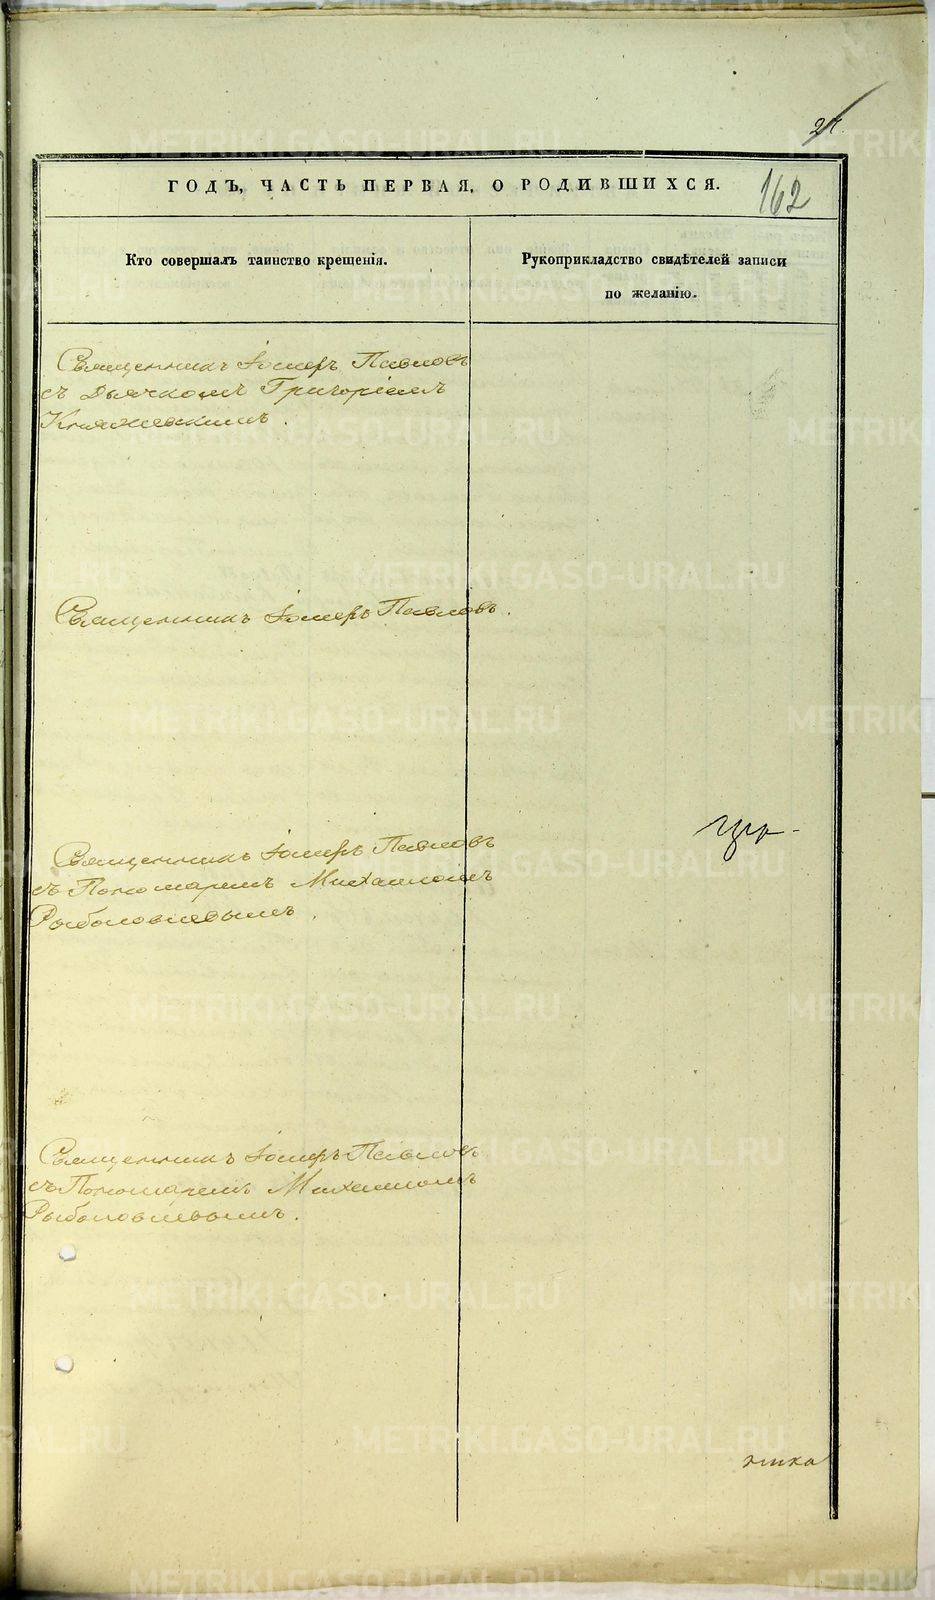 ГОДЪ, ЧАСТЬ ПЕРВАЯ, О РОДИВШИХСЯ.
162
Кто совершалъ таинство крещенія.
Рукоприкладство свидѣтелей записи
по желанію.
Священникъ Іосифъ Павловъ
съ Дьячкомъ Григоріемъ
Княжевскимъ.
Священникъ Іосифъ Павловъ.
Священникъ Іосифъ Павловъ
съ Пономаремъ Михаиломъ
Рыболовлевымъ.
Священникъ Іосифъ Павловъ
съ Пономаремъ Михаиломъ
Рыболовлевымъ.
METRIKI.GASO-URAL.RU